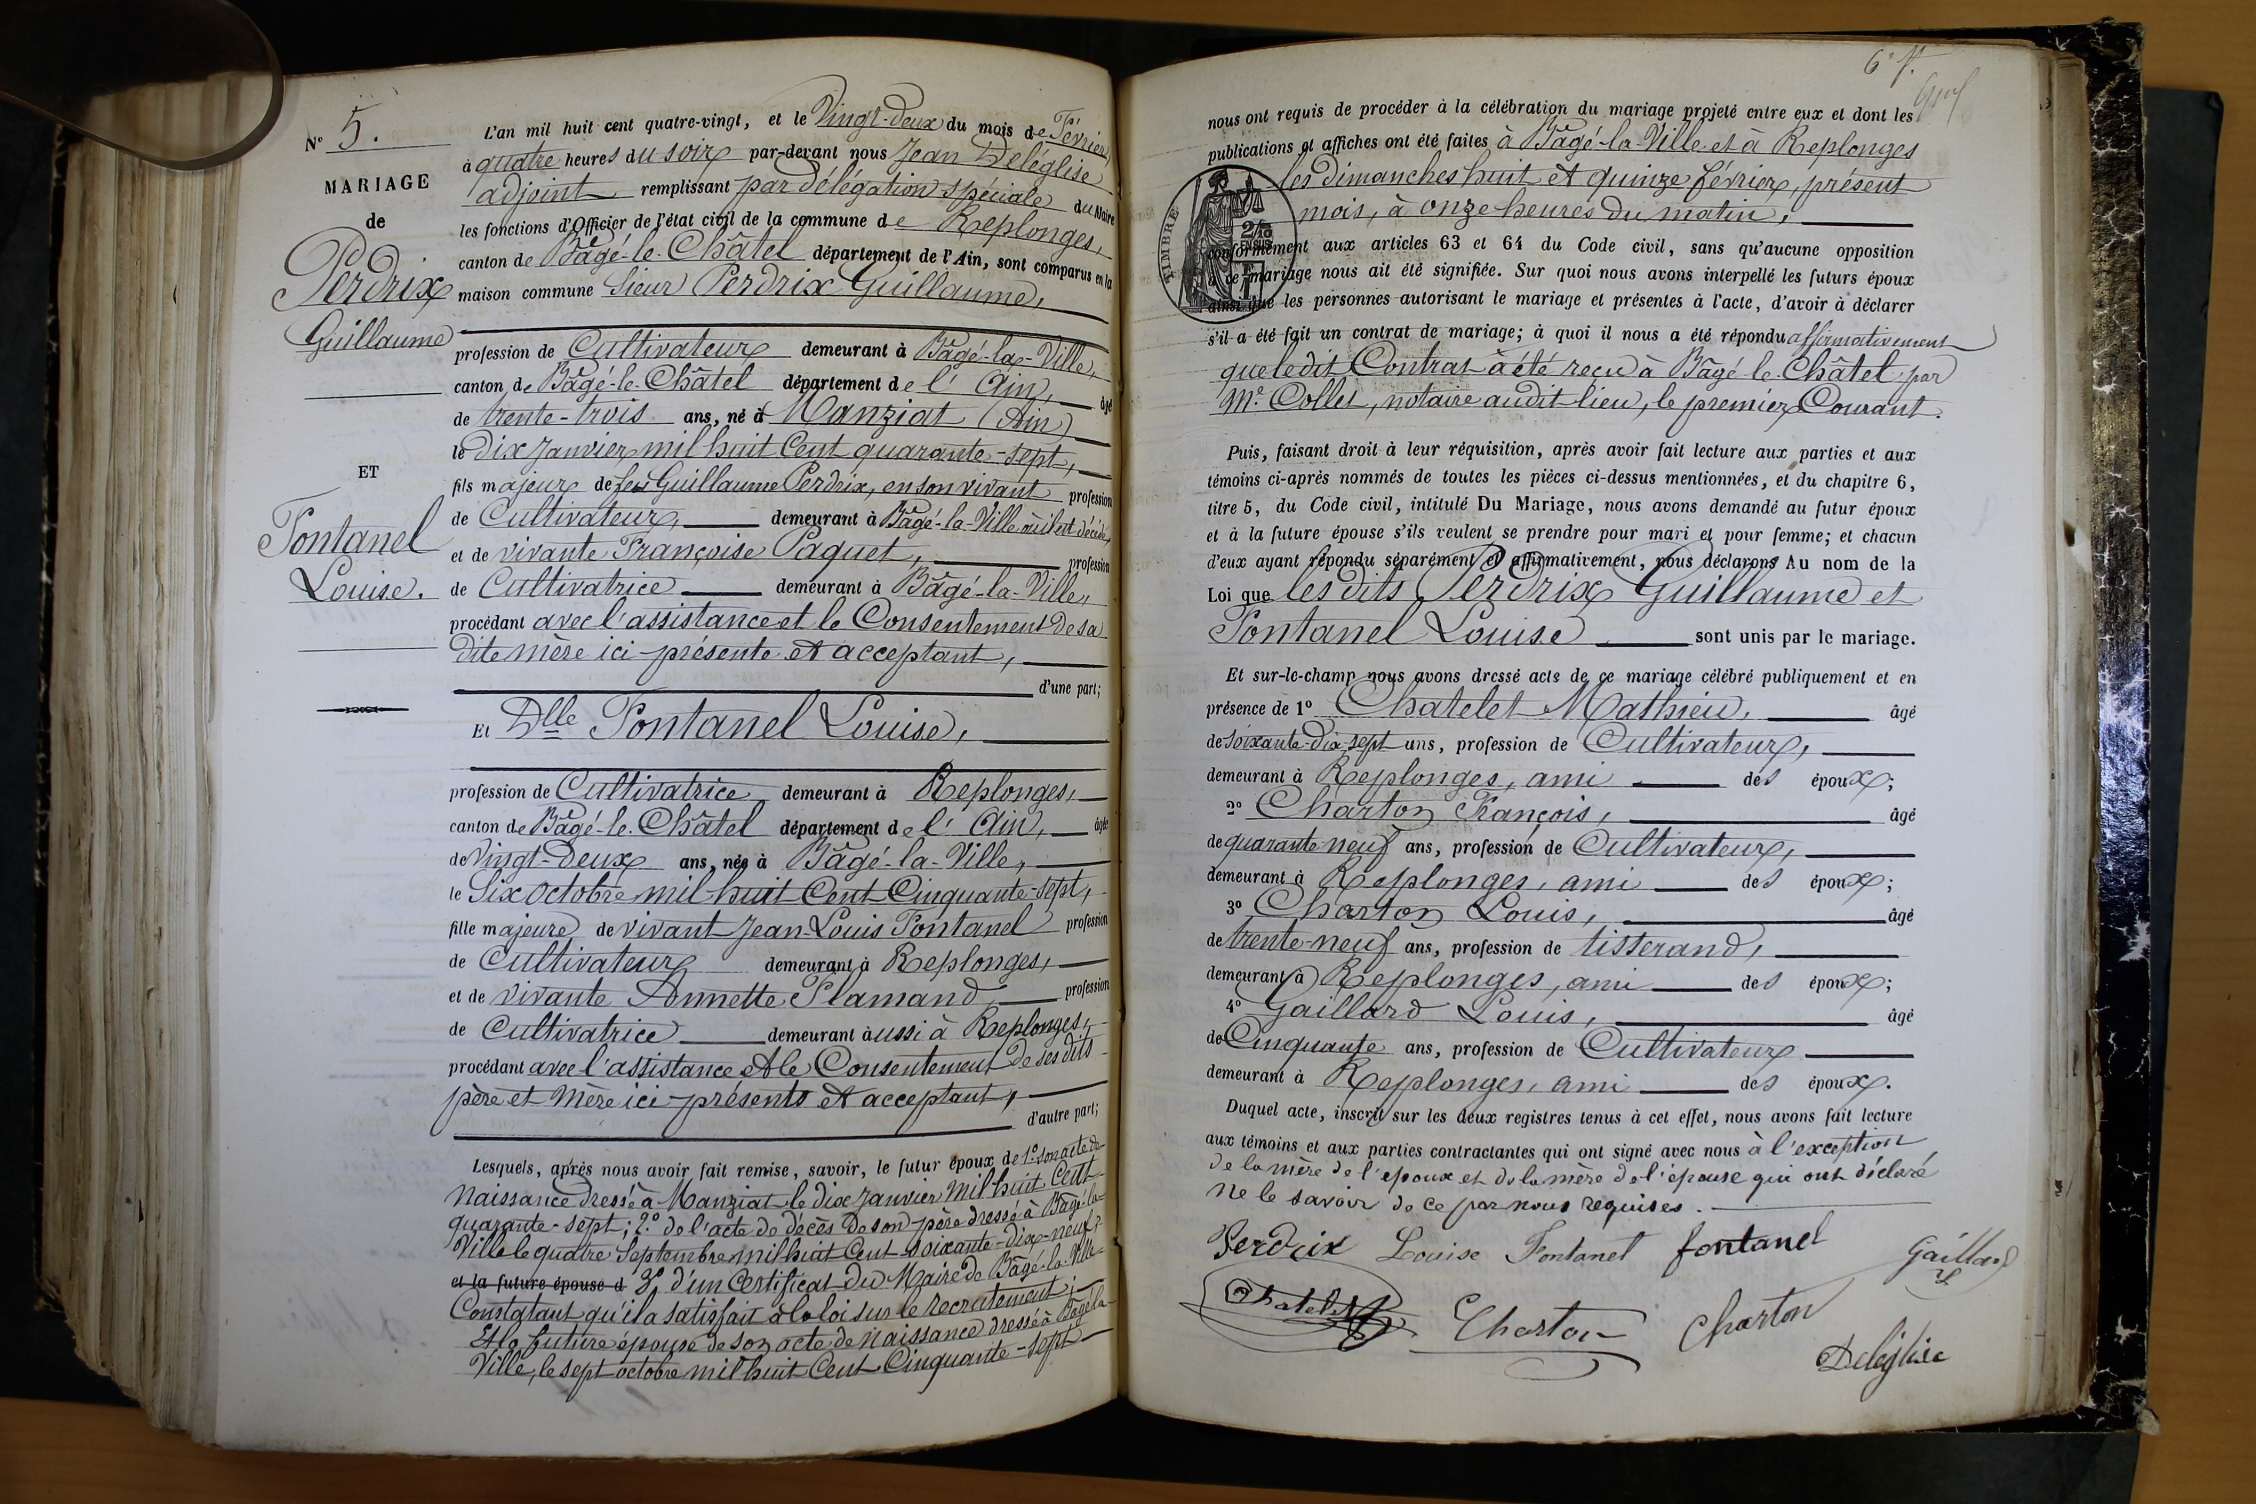 N° 5.
MARIAGE
de
Perdrix
Guillaume
ET
Fontanel
Louise.
L'an mil huit cent quatre-vingt, et le Vingt-deux du mois de Février
à quatre heures du soir par-devant nous Jean Deléglise
adjoint remplissant par délégation spéciale du Maire
les fonctions d'Officier de l'état civil de la commune de Replonges,
canton de Bâgé-le-Châtel département de l'Ain, sont comparus en la
maison commune Sieur Perdrix Guillaume,
profession de Cultivateur demeurant à Bâgé-la-Ville,
canton de Bâgé-le-Châtel département de l' Ain, âgé
de trente-trois ans, né à Manziat (Ain)
le Dix Janvier mil huit cent quarante-sept,
fils majeur de feu Guillaume Perdrix, en son vivant profession
de Cultivateur, demeurant à Bâgé-la-Ville où il est décédé,
et de vivante Françoise Paquet, profession
de Cultivatrice demeurant à Bâgé-la-Ville,
procédant avec l'assistance et le Consentement de sa
dite mère ici présente et acceptant,
d'une part;
Et Dlle Fontanel Louise,
profession de Cultivatrice demeurant à Replonges,
canton de Bâgé-le-Châtel département de l' Ain, âgée
de Vingt-deux ans, née à Bâgé-la-Ville,
le Six octobre mil huit Cent Cinquante-sept,
fille majeure de vivant Jean-Louis Fontanel profession
de Cultivateur demeurant à Replonges,
et de vivante Annette Flamand, profession
de Cultivatrice demeurant aussi à Replonges,
procédant avec l'assistance et le Consentement de ses dits
père et mère ici présents et acceptant,
d'autre part;
Lesquels, après nous avoir fait remise, savoir, le futur époux de 1° son acte de
Naissance dressé à Manziat le dix Janvier Mil huit Cent
quarante-sept; 2° de l'acte de décès de son père dressé à Bâgé-la-
Ville le quatre Septembre mil huit Cent soixante-dix-neuf;
et la future épouse d 3° d'un Certificat du Maire de Bâgé-la-Ville
Constatant qu'il a satisfait à la loi sur le recrutement;
Et la future épouse de son acte de Naissance dressé à Bâgé la
Ville, le sept octobre mil huit Cent Cinquante-sept
6e f.
nous ont requis de procéder à la célébration du mariage projeté entre eux et dont les
publications et affiches ont été faites à Bâgé-la-Ville et à Replonges
les dimanches huit et quinze février, présent
mois, à onze heures du matin,
TIMBRE
conformément aux articles 63 et 64 du Code civil, sans qu'aucune opposition
à ce mariage nous ait été signifiée. Sur quoi nous avons interpellé les futurs époux
ainsi que les personnes autorisant le mariage et présentes à l'acte, d'avoir à déclarer
s'il a été fait un contrat de mariage; à quoi il nous a été répondu affirmativement
que le dit Contrat à été reçu à Bâgé-le-Châtel par
Me Collet, notaire audit lieu, le premier Courant.
Puis, faisant droit à leur réquisition, après avoir fait lecture aux parties et aux
témoins ci-après nommés de toutes les pièces ci-dessus mentionnées, et du chapitre 6,
titre 5, du Code civil, intitulé Du Mariage, nous avons demandé au futur époux
et à la future épouse s'ils veulent se prendre pour mari et pour femme; et chacun
d'eux ayant répondu séparément et affirmativement, nous déclarons Au nom de la
Loi que les dits Perdrix Guillaume et
Fontanel Louise sont unis par le mariage.
Et sur-le-champ nous avons dressé acte de ce mariage célébré publiquement et en
présence de 1° Chatelet Mathieu, âgé
de soixante-dix-sept ans, profession de Cultivateur,
demeurant à Replonges, ami des époux;
2° Charton François, âgé
de quarante-neuf ans, profession de Cultivateur,
demeurant à Replonges, ami des époux;
3° Charton Louis, âgé
de trente-neuf ans, profession de tisserand,
demeurant à Replonges, ami des époux;
4° Gaillard Louis, âgé
de Cinquante ans, profession de Cultivateur
demeurant à Replonges, ami des époux.
Duquel acte, inscrit sur les deux registres tenus à cet effet, nous avons fait lecture
aux témoins et aux parties contractantes qui ont signé avec nous à l'exception
de la mère de l'époux et de la mère de l'épouse qui ont déclaré
ne le savoir de ce par nous requises.
Perdrix Louise Fontanel fontanel Gaillard
Chatelet Charton Charton
Deléglise